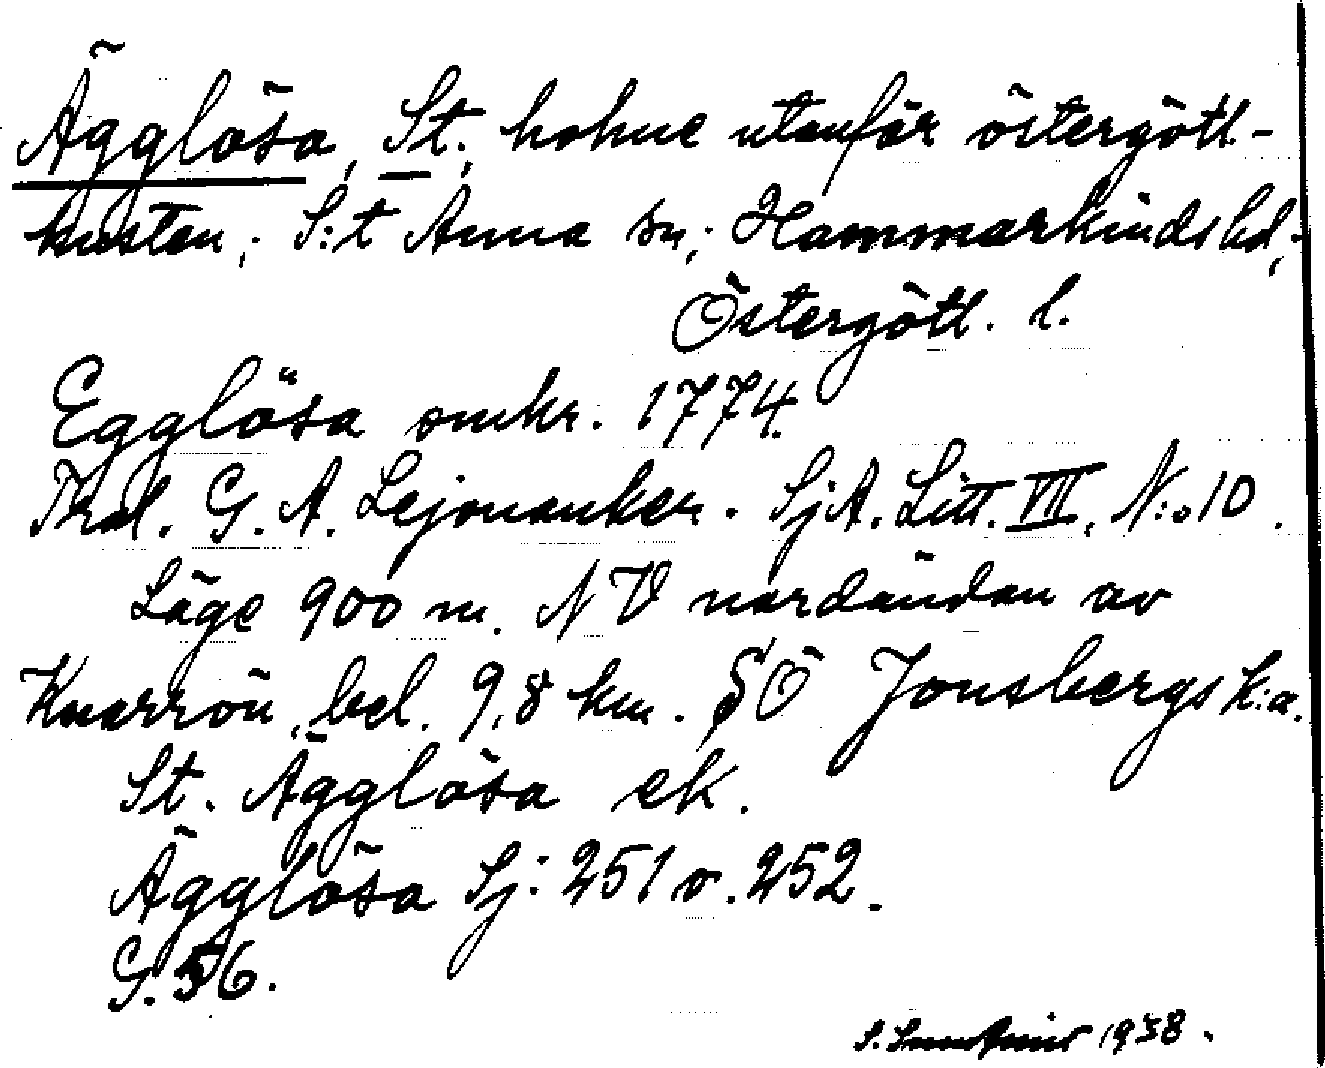 Ägglösa, St., holme utanför östergötl-
kusten; S:t Anna sn; Hammarkinds hd;
Östergötl. l.
Egglösa omkr. 1774.
Thal. G. A. Lejonanker. SjA. Litt. VII, N:o 10.
Läge 900 m. NV nordändan av
Knarrön, bel. 9,8 km. SÖ Jonsbergs k:a.
St. Ägglösa ek.
Ägglösa Sj: 251 o. 252.
G. 56.
S. 1938.